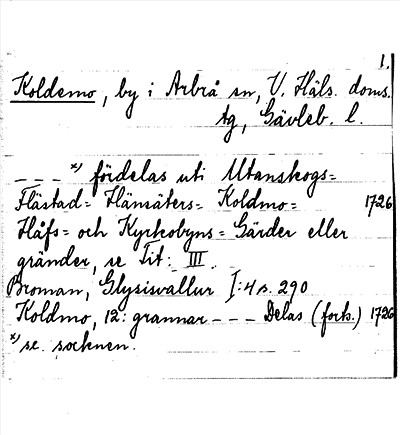 1.
Koldemo, by i Arbrå sn, V. Häls. doms.
tg, Gävleb. l.
- - - x) fördelas uti Utanskogs=
Flästad= Hänsäters= Koldmo= 1726
Håfs= och Kyrkobyns= Gärder eller
gränder, se Tit: III.
Broman, Glysisvallur I:4 s. 290
Koldmo, 12: grannar - - - Delas (forts.) 1726
x) se. socknen.